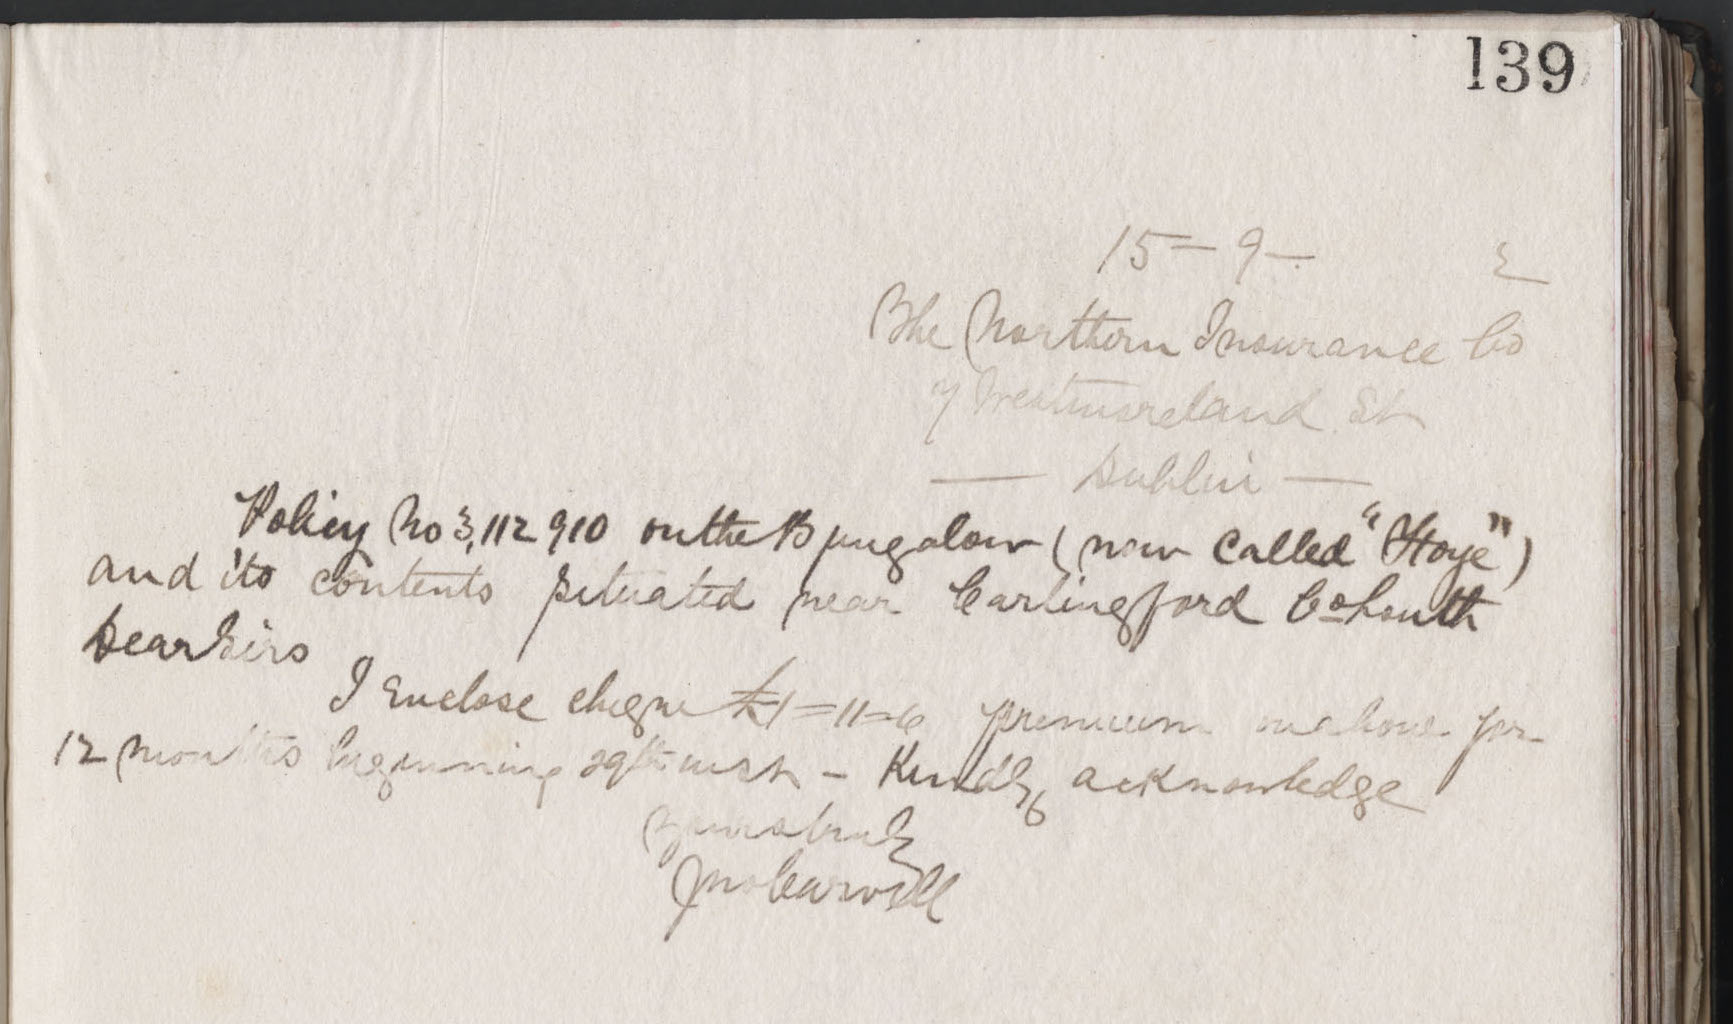 139
15 - 9 -
The Northern Insurance Co
7 Westmoreland St
— Dublin —
Policy No 3,112910 on the Bungalow (now called "Hoye")
and its contents situated near Carlingford Co Louth
Dear Sirs
I enclose cheque £1=11=6 premium on above for
12 months beginning 29th inst - Kindly acknowledge
Yours truly
Jno Carvill